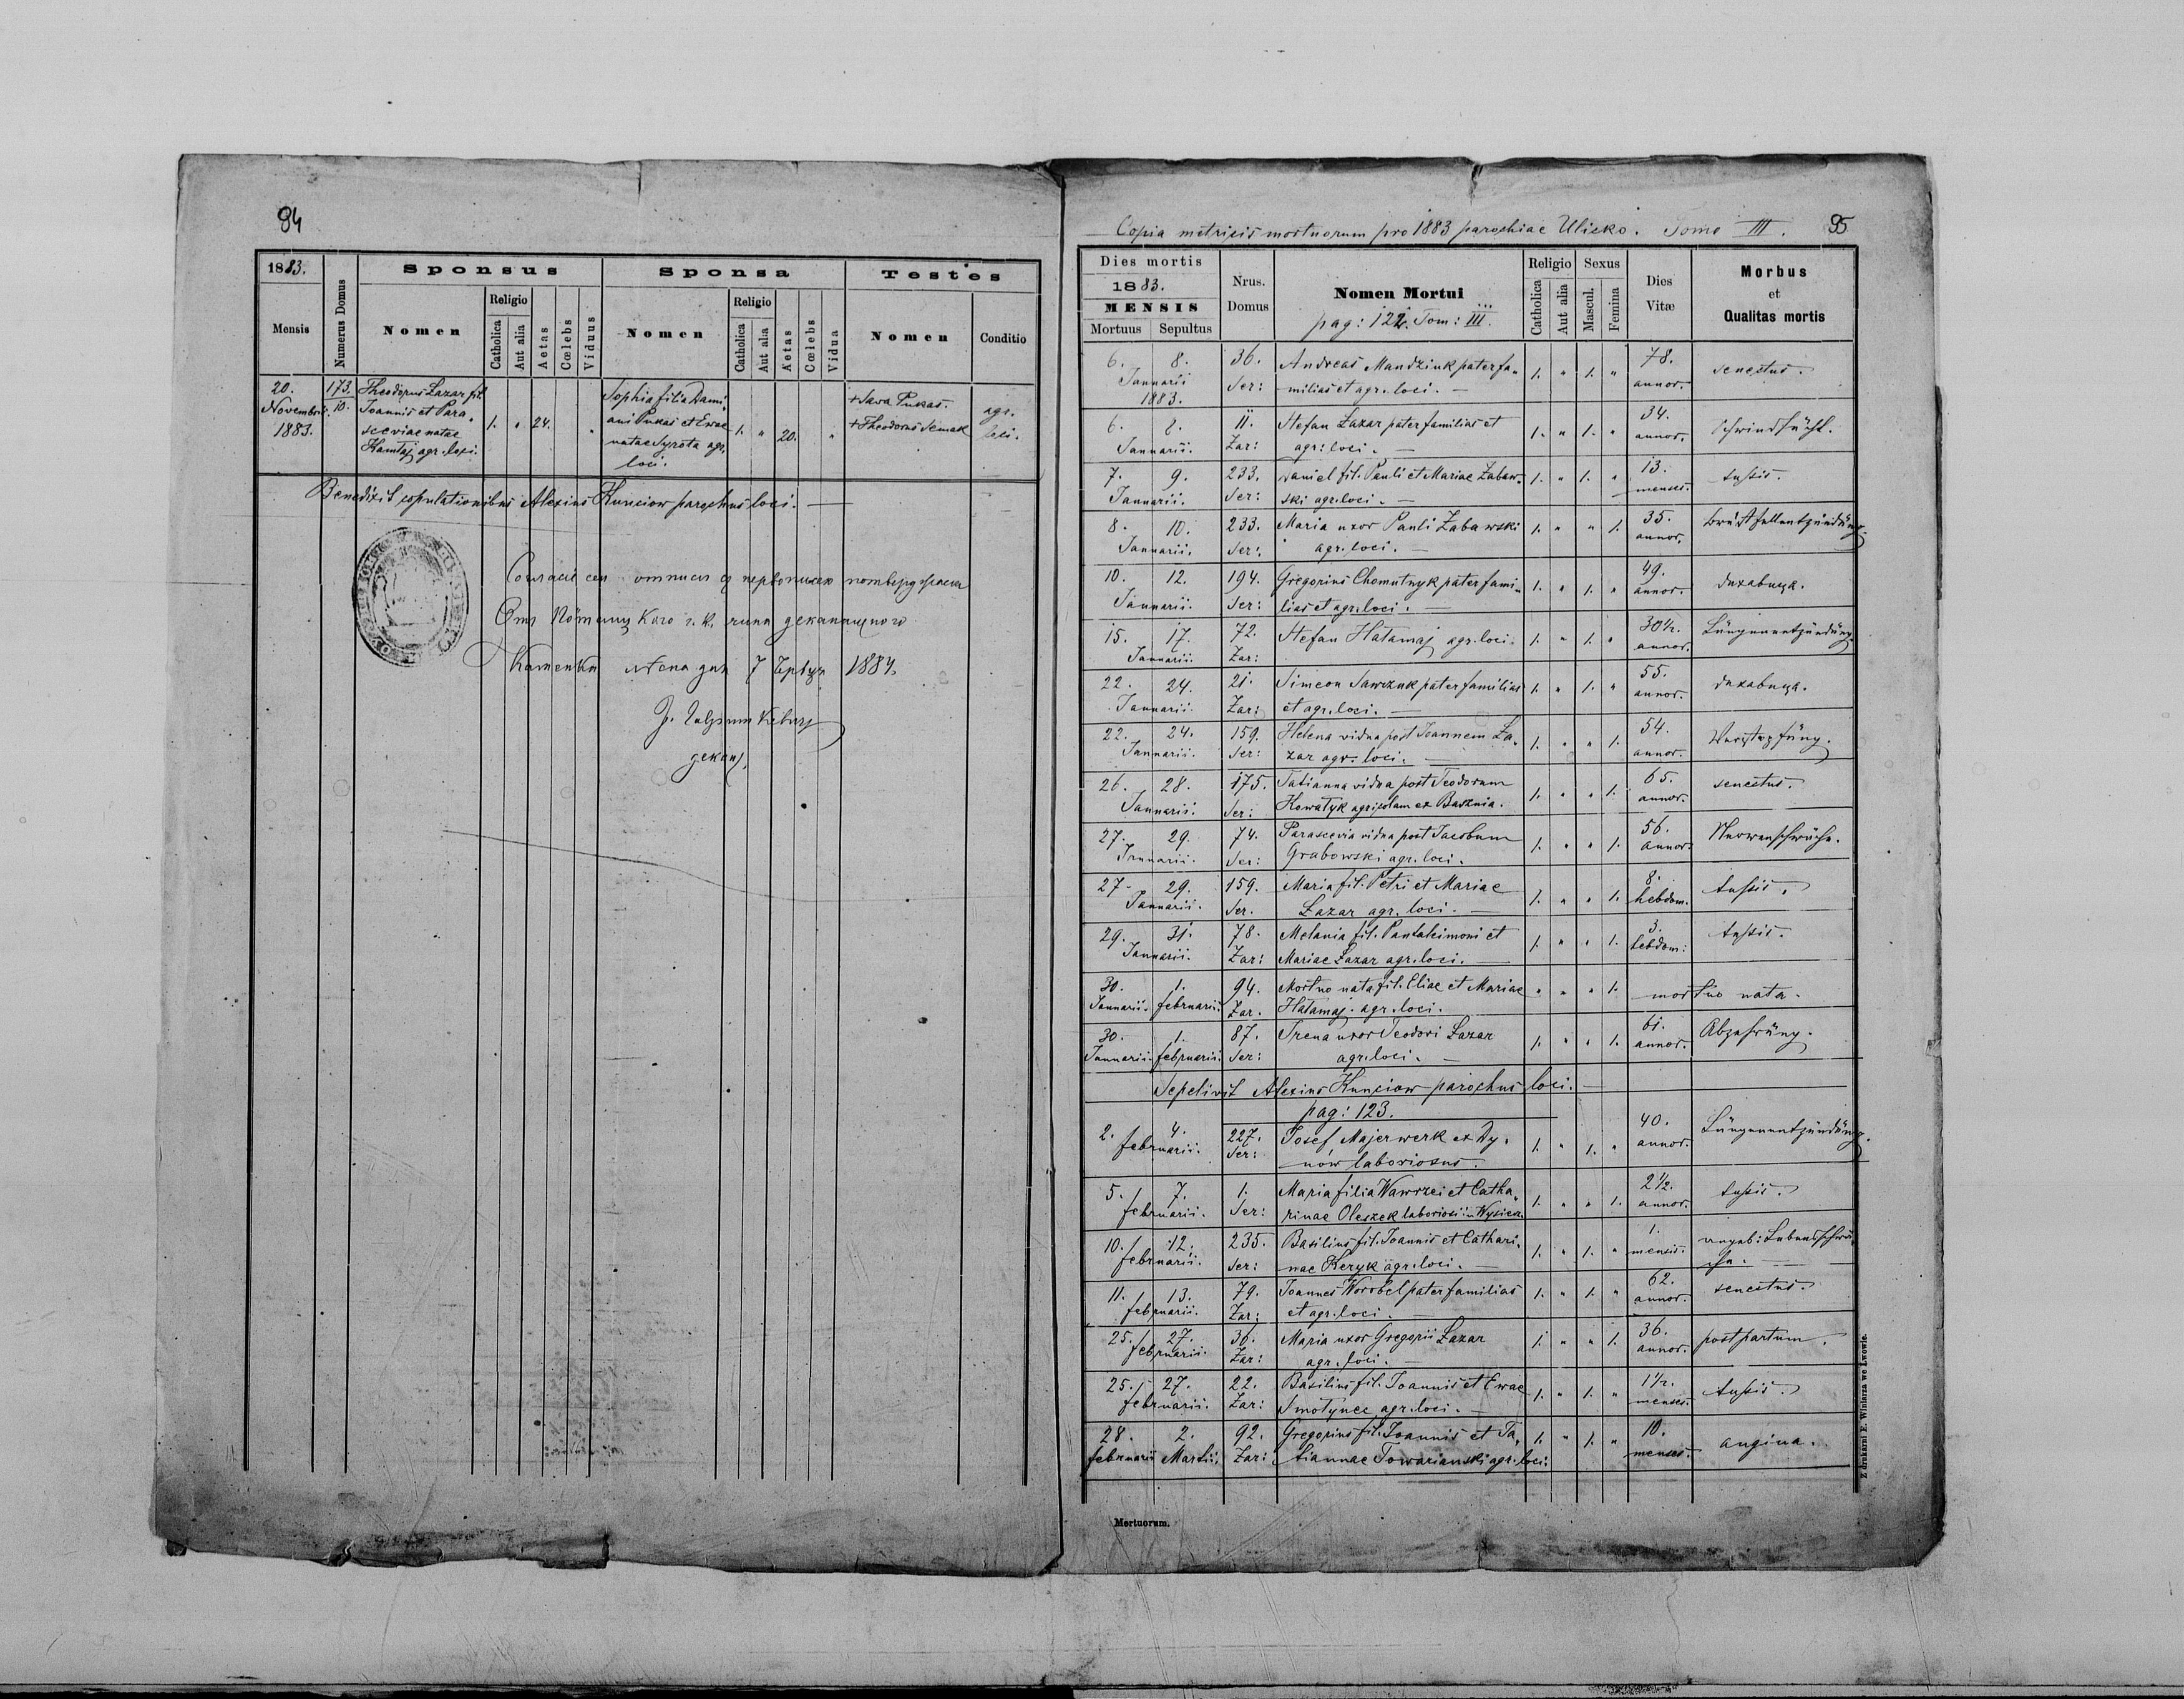 94
1883.
Mensis
Numerus Domus
Sponsus
Nomen
Religio
Catholica
Aut alia
Aetas
Cœlebs
Viduus
Sponsa
Nomen
Religio
Catholica
Aut alia
Aetas
Cœlebs
Vidua
Testes
Nomen
Conditio
20. 173. Theodorus Lazar fil.
Novembris. 10. Joannis et Para„
1883. sceviae natae
Kamtaj agr. loci.
1. „ 24. „
Sophia filia Dami„
ani Pukas et Ewae
natae Syrota agr.
loci.
1. „ 20. „
+ Sava Pukas.
+ Theodorus Semak
agr.
loci.
Benedixit copulationibus Alexius Kunciow parochus loci. —
1884.
Copia metricis mortuorum pro 1883 parochiae Ulicko. Tomo III. 95
Dies mortis
1883.
MENSIS
Mortuus Sepultus
Nrus.
Domus
Nomen Mortui
pag: 122. Tom: III.
Religio
Catholica
Aut alia
Sexus
Mascul.
Femina
Dies
Vitæ
Morbus
et
Qualitas mortis
6. 8. 36. Andreas Mandziuk pater fa„ 1. „ 1. „ 78. senectus.
Januarii Ser: milias et agr. loci. — annor.
1883.
6. 8. 11. Stefan Lazar pater familias et 1. „ 1. „ 34. Schwindsucht.
Januarii. Zar: agr: loci. — annor.
7. 9. 233. Daniel fil. Pauli et Mariae Zabaw„ 1. „ 1. „ 13. tussis.
Januarii. Ser: ski agr. loci. — menses.
8. 10. 233. Maria uxor Pauli Zabawski 1. „ „ 1. 35. Brustfellentzündung.
Januarii. Ser: agr. loci. — annor.
10. 12. 194. Gregorius Chomutnyk pater fami„ 1. „ 1. „ 49. духавиця.
Januarii. Ser: lias et agr. loci. — annor.
15. 17. 72. Stefan Hałamaj agr. loci. 1. „ 1. „ 30½. Lungenentzündung.
Januarii. Zar: annor.
22. 24. 21. Simeon Sawczuk pater familias 1. „ 1. „ 55. духавиця.
Januarii. Zar: et agr. loci. — annor.
22. 24. 159. Helena vidua post Joannem La„ 1. „ „ 1. 54. Verstopfung.
Januarii. Ser: zar agr. loci. — annor.
26. 28. 175. Tatianna vidua post Teodorum 1. „ „ 1. 65. senectus.
Januarii. Ser: Kowałyk agricolam ex Basznia. annor.
27. 29. 74. Parascevia vidua post Jacobum 1. „ „ 1. 56. Nervenschwäche.
Januarii. Ser: Grabowski agr. loci. annor.
27. 29. 159. Maria fil. Petri et Mariae 1. „ „ 1. 8. tussis.
Januarii. Ser. Lazar agr. loci. — hebdom.
29. 31. 78. Melania fil. Pantaleimoni et 1. „ „ 1. 3. tussis.
Januarii. Zar: Mariae Lazar agr. loci. — hebdom:
30. 1. 94. Mortuo nata fil. Eliae et Mariae „ „ „ 1. mortuo nata.
Januarii. februarii. Zar. Hałamaj agr. loci.
30. 1. 87. Irena uxor Teodori Lazar 1. „ „ 1. 61. Abzehrung.
Januarii. februarii. Ser: agr. loci. — annor.
Sepelivit Alexius Kunciow parochus loci. —
pag: 123.
2. 4. 227. Josef Majerwerk ex Dy„ 1. „ 1. „ 40. Lungenentzündung.
februarii. Ser: nów laboriosus. annor.
5. 7. 1. Maria filia Wawrzei et Catha„ 1. „ „ 1. 2½. tussis.
februarii. Ser: rinae Oleszek laboriosi annor.
10. 12. 235. Basilius fil. Joannis et Cathari„ 1. „ 1. „ 1. angeb: Lebensschwä„
februarii. Ser: nae Keryk agr. loci. — mensis. che.
11. 13. 79. Joannes Worobel pater familias 1. „ 1. „ 62. senectus.
februarii. Zar: et agr. loci. annor.
25. 27. 36. Maria uxor Gregorii Lazar 1. „ „ 1. 36. post partum.
februarii. Zar: agr. loci. — annor.
25. 27. 22. Basilius fil. Joannis et Ewae 1. „ 1. „ 1½. tussis.
februarii. Zar: Smotynec agr. loci. — menses.
28. 2. 92. Gregorius fil. Joannis et Ta„ 1. „ 1. „ 10. angina.
februarii Martii. Zar: tiannae Towarianski agr. loci. menses.
Mortuorum.
Z drukarni E. Winiarza we Lwowie.